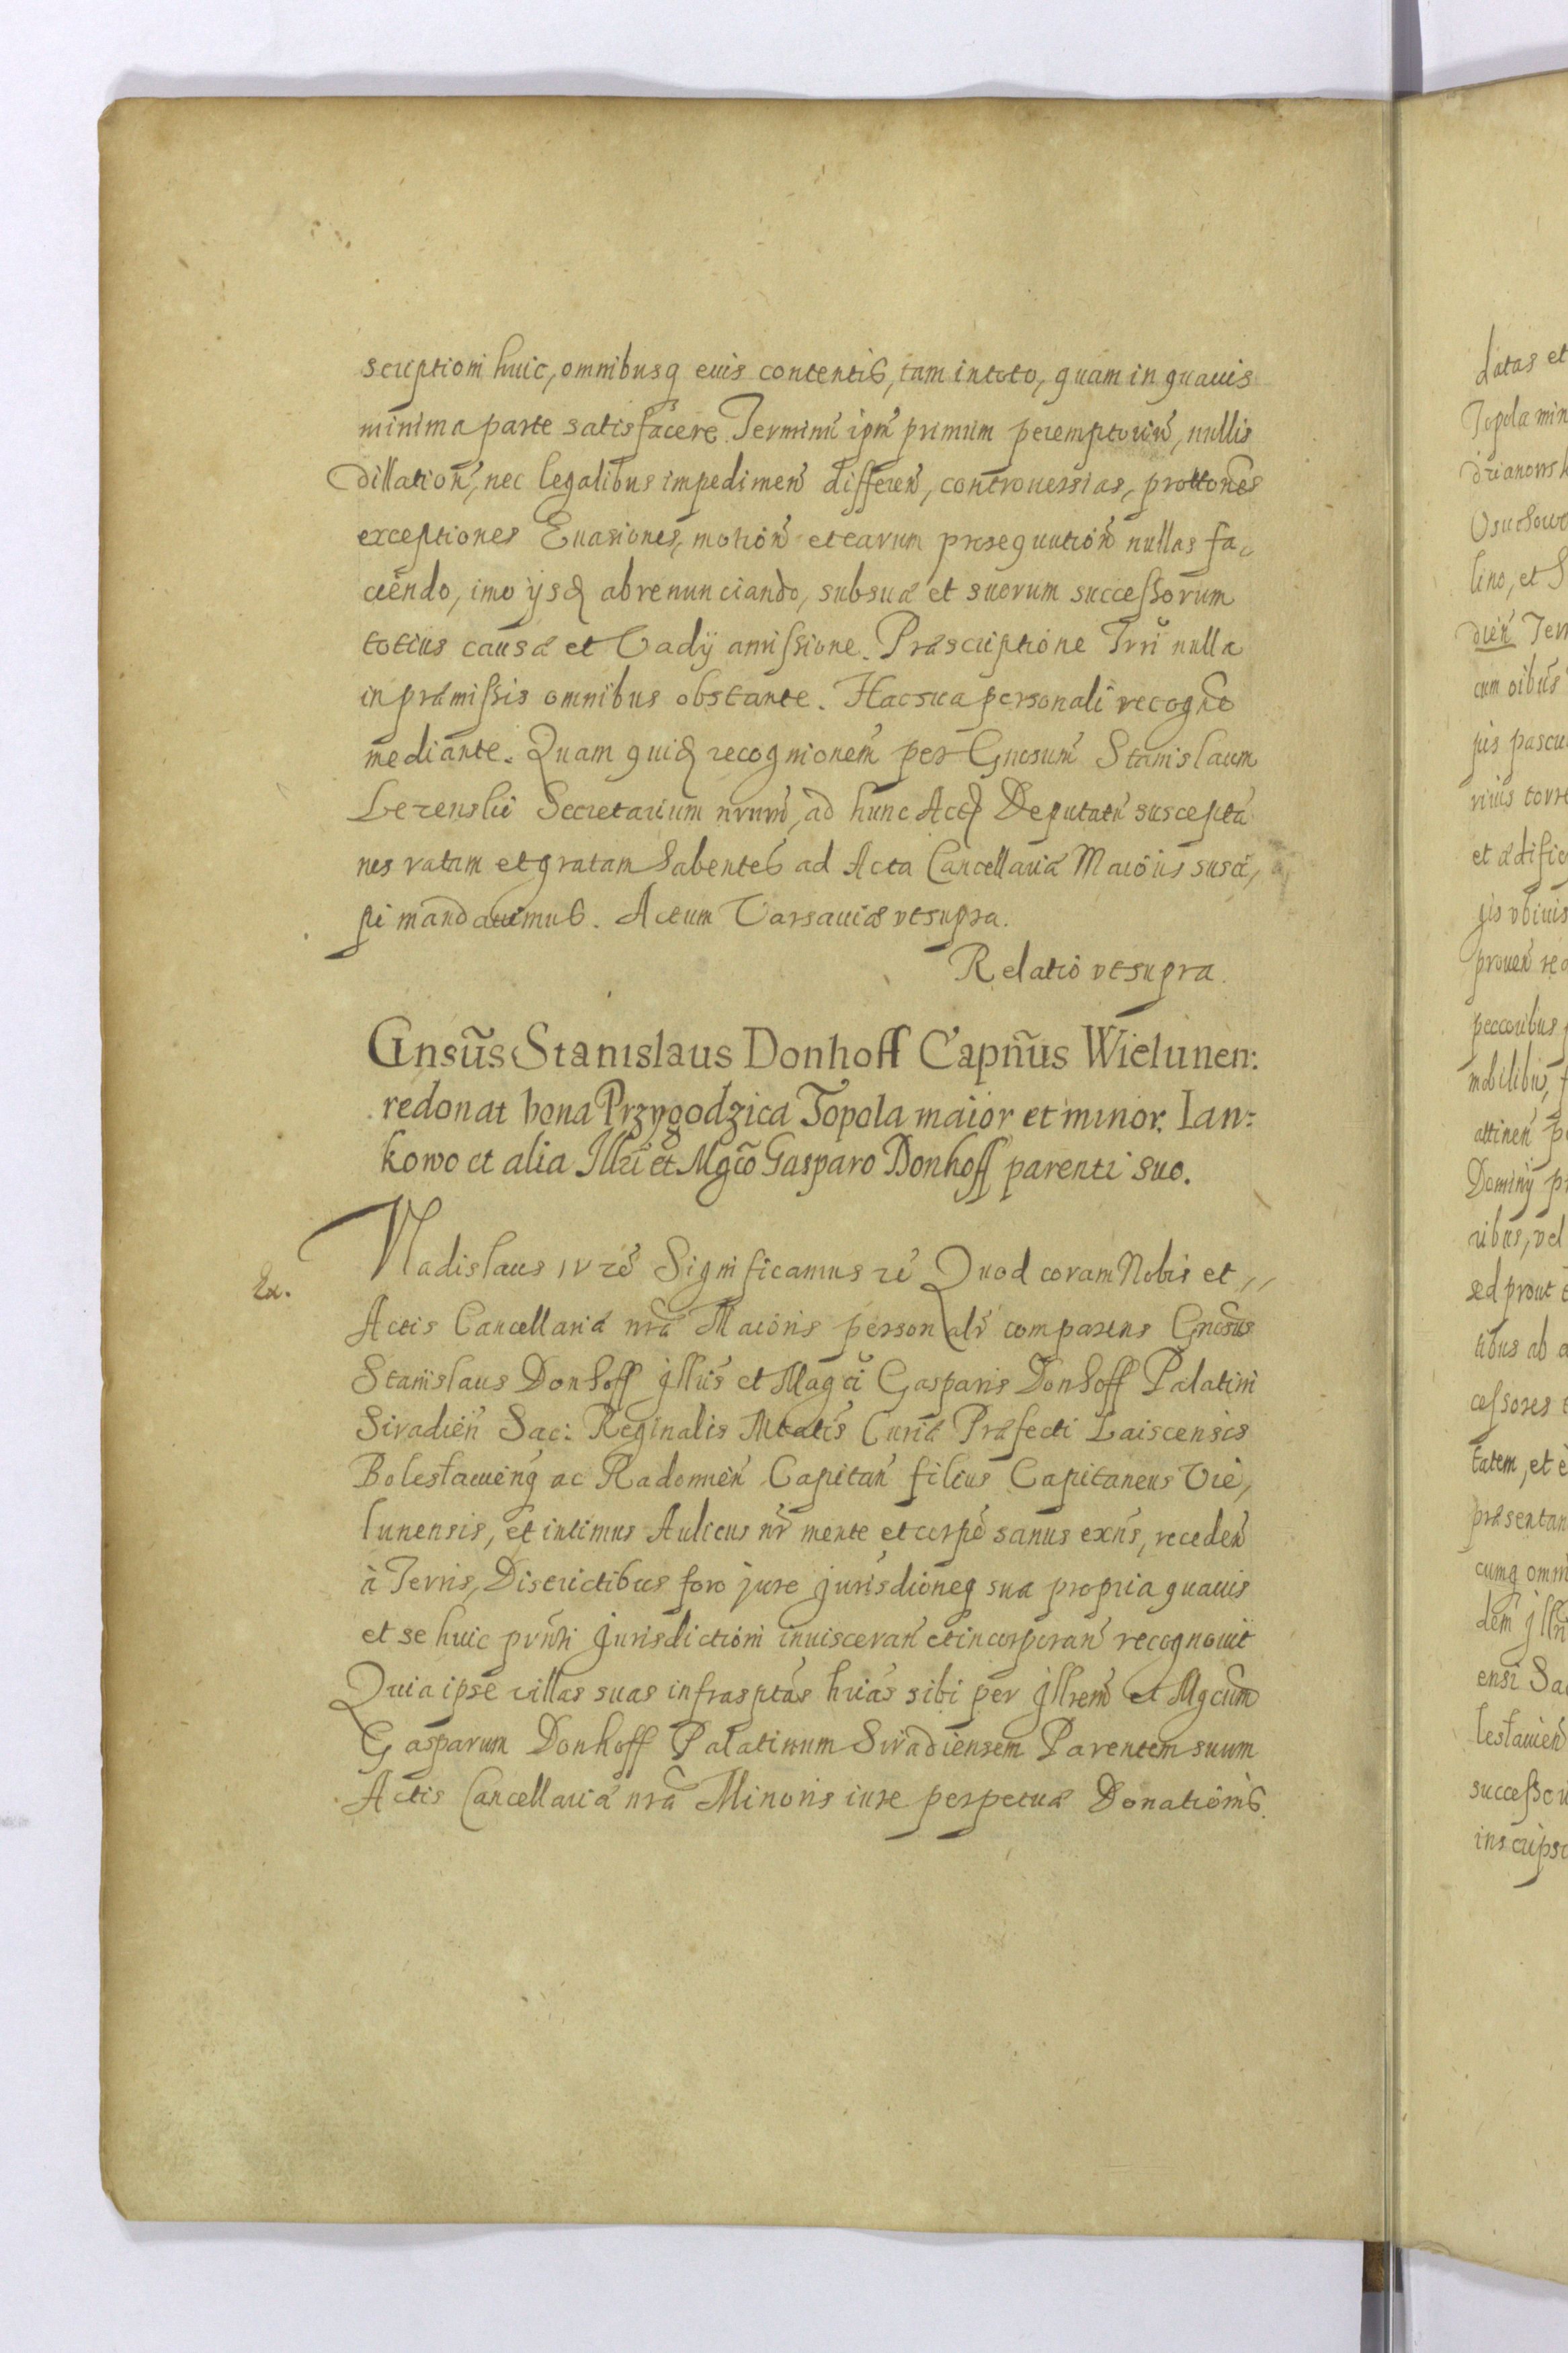 scriptioni huic, omnibusq eius contentis, tam in toto, quam in quauis
minima parte satisfacere. Terminũ ipm̃ primum peremptoriũ, nullis
dillation̄, nec legalibus impedimen̄ differen̄, controuersias, prottones
exceptiones Euasiones, motion̄ et earum prosequution̄ nullas fa,
ciendo, imo ijsq abrenunciando, sub suæ et suorum successorum
totius causæ et Vadij amissione. Præscriptione Trrĩ nulla
in præmissis omnibus obstante. Hac sua personali recogne
mediante. Quam quiq recognionem̃ per Gnosum̃ Stanislaum
Secretarium nrum̃, ad hunc Actq Deputatũ susceptã
nos ratam et gratam habentes ad Acta Cancellariæ Maioris susci,
pi mandauimus. Actum Varsauiæ vt supra.
Relatio vt supra.
Gnsũs Stanislaus Donhoff Capnũs Wielunen:
redonat bona Przygodzica Topola maior et minor, Ian:
kowo et alia Illri et Mgco Gasparo Donhoff parenti suo.
Ex.
Vladislaus IV rē Significamus rē Quod coram Nobis et,,
Actis Cancellariæ nræ Maioris personalr comparens Gnosus
Stanislaus Donhoff Jllris et Magci Gasparis Donhoff Palatini
Siradien̄ Sac: Reginalis Mtatis Curiæ Præfecti Laiscensis
Bolesławieng ac Radomien̄ Capitan̄ filius Capitaneus Vie,
lunensis, et intimus Aulicus nr̄ mente et corpe sanus exn̄s, receden̄
à Terris, Districtibus foro jure jurisdioneq sua propria quauis
et se huic prn̄ti Jurisdictioni inuisceran̄ et incorporan̄ recognouit
Quia ipse villas suas infrasptas hrias sibi per Jllrem̃ et Mgcum̃
Gasparum Donhoff Palatinum Siradiensem Parentem suum
Actis Cancellariæ nræ Minoris iure perpetuæ Donationis
datas et
Topola min
drianows
lino, et
dien̄ Terr
cum oibus
jis pascu
riuis torre
et ædific
gis vbiuis
prouen̄
peccoribus
mobilibus,
attinen̄
Dominij
ribus, vel
sed prout
tibus ab
cessores
tatem, et
præsentan
cumq omni
dem Jllri
ensi Sa
lesławien̄
successo
inscripsi